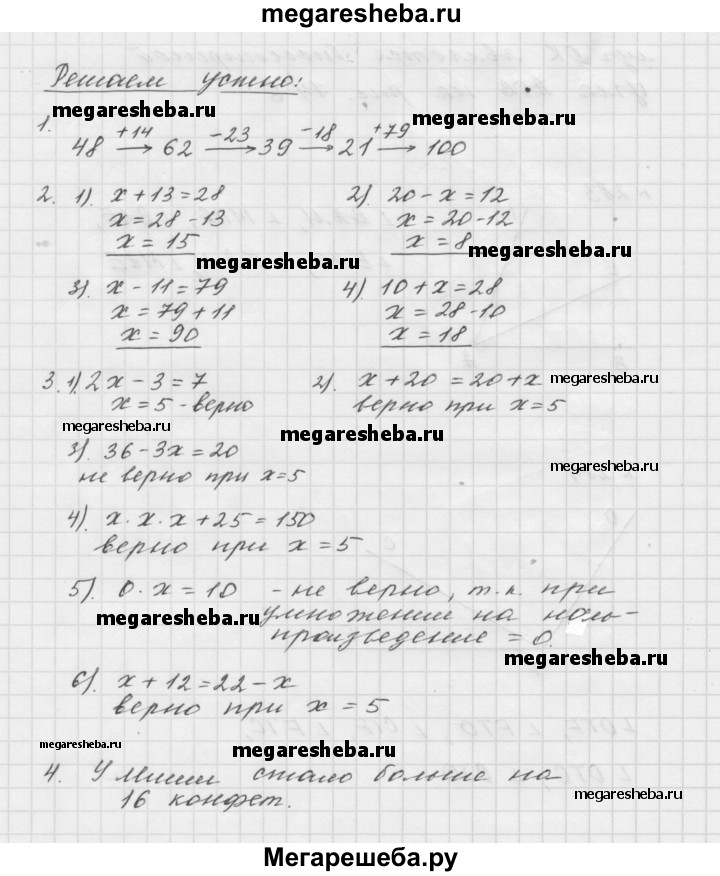 megaresheba.ru
Решаем устно:
megaresheba.ru megaresheba.ru
1. 48 +14→ 62 -23→ 39 -18→ 21 +79→ 100
2. 1). x + 13 = 28 2). 20 - x = 12
x = 28 - 13 x = 20 - 12
x = 15 x = 8
megaresheba.ru megaresheba.ru
3). x - 11 = 79 4). 10 + x = 28
x = 79 + 11 x = 28 - 10
x = 90 x = 18
3. 1). 2x - 3 = 7 2). x + 20 = 20 + x megaresheba.ru
x = 5 - верно верно при x = 5
megaresheba.ru megaresheba.ru
3). 36 - 3x = 20
не верно при x = 5
megaresheba.ru
4). x · x · x + 25 = 150
верно при x = 5
5). 0 · x = 10 - не верно, т.к. при
megaresheba.ru умножении на ноль-
произведение = 0.
megaresheba.ru
6). x + 12 = 22 - x
верно при x = 5
megaresheba.ru
4. У Миши стало больше на
16 конфет.
megaresheba.ru
Мегарешеба.ру